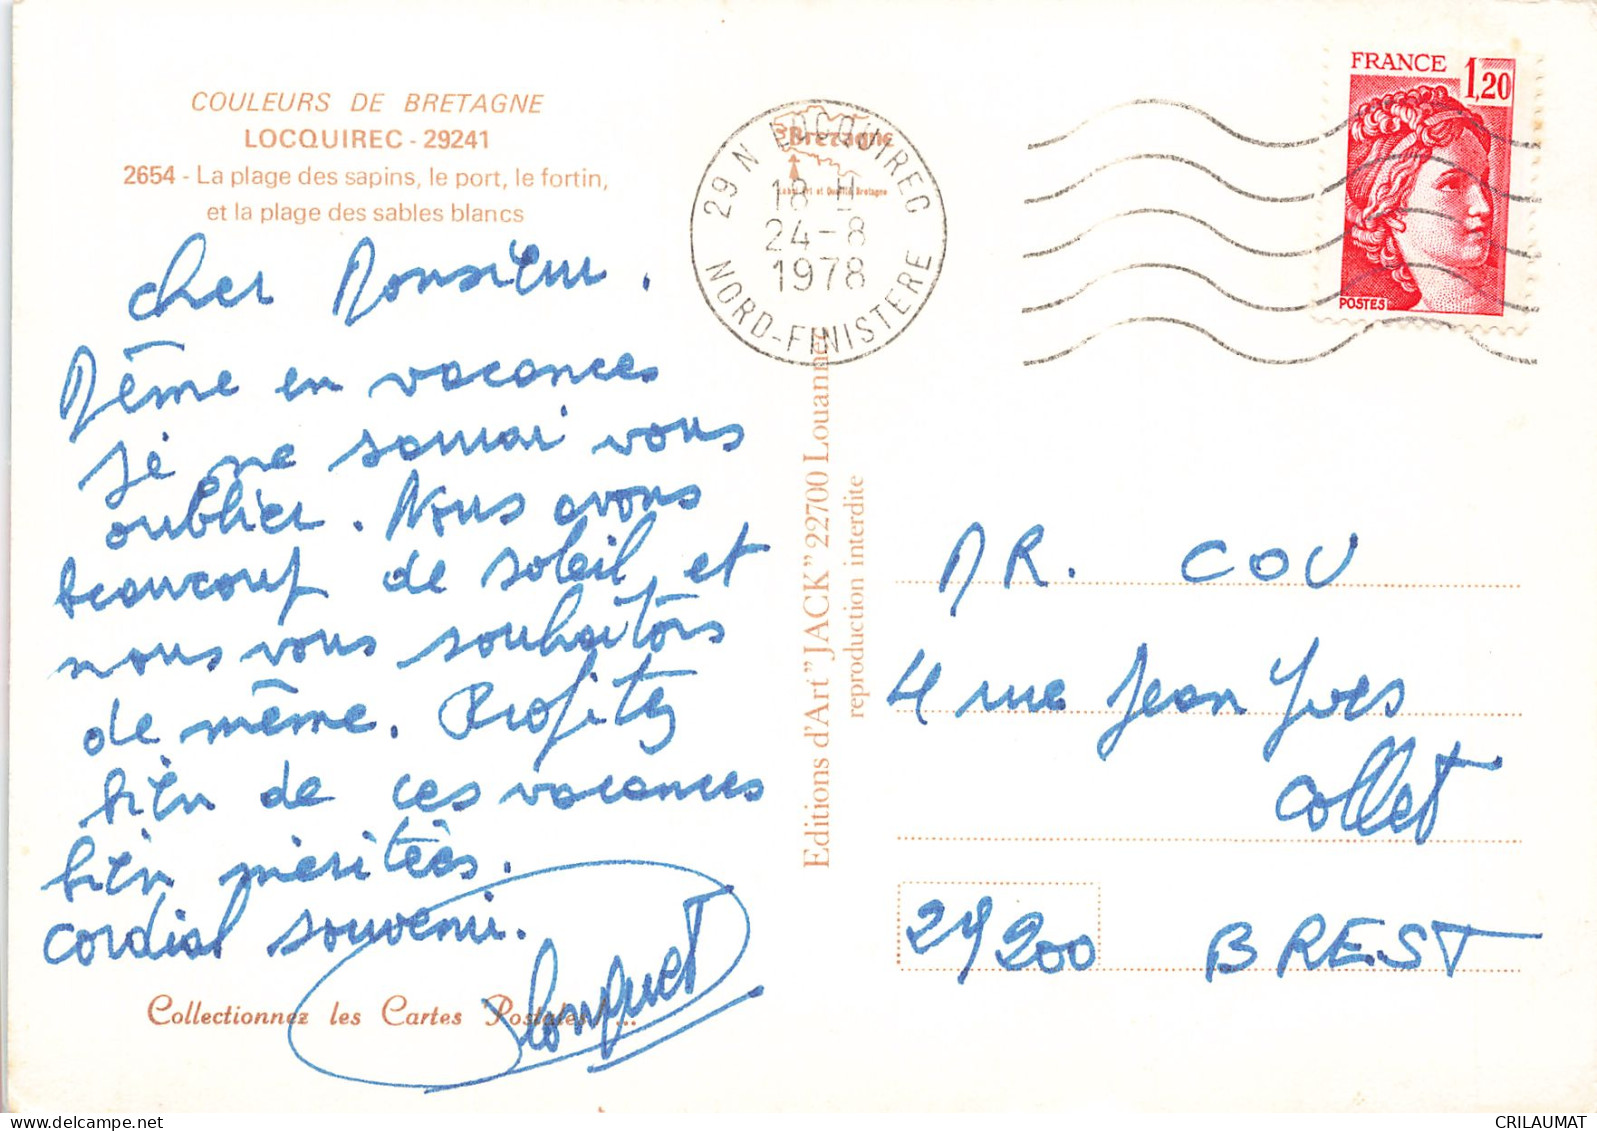 COULEURS DE BRETAGNE
LOCQUIREC - 29241
2654 - La plage des sapins, le port, le fortin,
et la plage des sables blancs
cher Monsieur.
Même en vacances
je ne saurai vous
oublier. Nous avons
beaucoup de soleil, et
nous vous souhaitons
de même. Profitez
bien de ces vacances
bien méritées.
cordial souvenir.
Collectionnez les Cartes Postales !...
29 N LOCQUIREC
18 H
24-8
1978
NORD-FINISTERE
Bretagne
Editions d'Art "JACK" 22700 Louannec
reproduction interdite
FRANCE 1,20
POSTES
MR. COU
4 rue Jean Yves
Collet
29200 BREST
CRILAUMAT